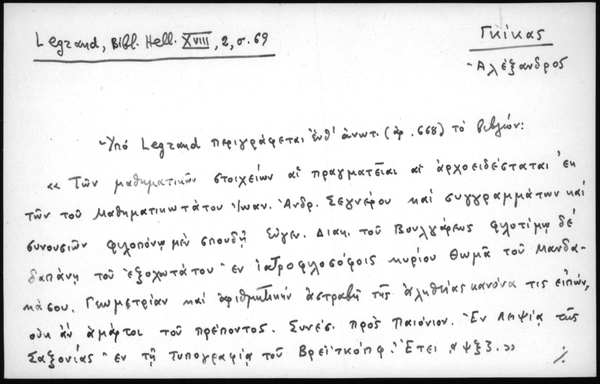 Legrand, Bibl. Hell. XVIII, 2, σ. 69
Γκίκας
Ἀλέξανδρος
Ὑπό Legrand περιγράφεται ἔνθ' ἀνωτ. (ἀρ. 668) τό βιβλίον:
«Τῶν μαθηματικῶν στοιχείων αἱ πραγματεῖαι αἱ ἀρχοειδέσταται ἐκ
τῶν τοῦ μαθηματικωτάτου Ἰωαν. Ἀνδρ. Σεγνέρου καί συγγραμμάτων καί
συνουσιῶν φιλοπόνῳ μέν σπουδῇ Εὐγεν. Διακ. τοῦ Βουλγάρεως φιλοτίμῳ δέ
δαπάνῃ τοῦ ἐξοχωτάτου ἐν ἰατροφιλοσόφοις κυρίου Θωμᾶ τοῦ Μανδα-
κάσου. Γεωμετρίαν καί ἀριθμητικήν ἀστραβῆ τῆς ἀληθείας κανόνα τις εἰπών,
οὐκ ἄν ἁμάρτοι τοῦ πρέποντος. Συνέσ. πρός Παιόνιον. Ἐν Λειψίᾳ τῆς
Σαξονίας ἐν τῇ Τυπογραφίᾳ τοῦ Βρεϊτκόπφ. Ἔτει ͵αψξζ.»